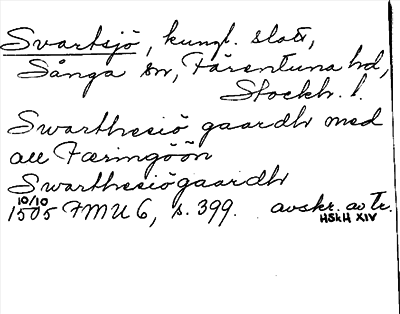 Svartsjö, kungl. slott,
Sånga sn, Färentuna hd,
Stockh. l.
Swarthesiö gaardh med
all Færingöön
Swarthesiögaardh
10/10
1505 FMU 6, s. 399. avskr. av tr.
HSkH XIV